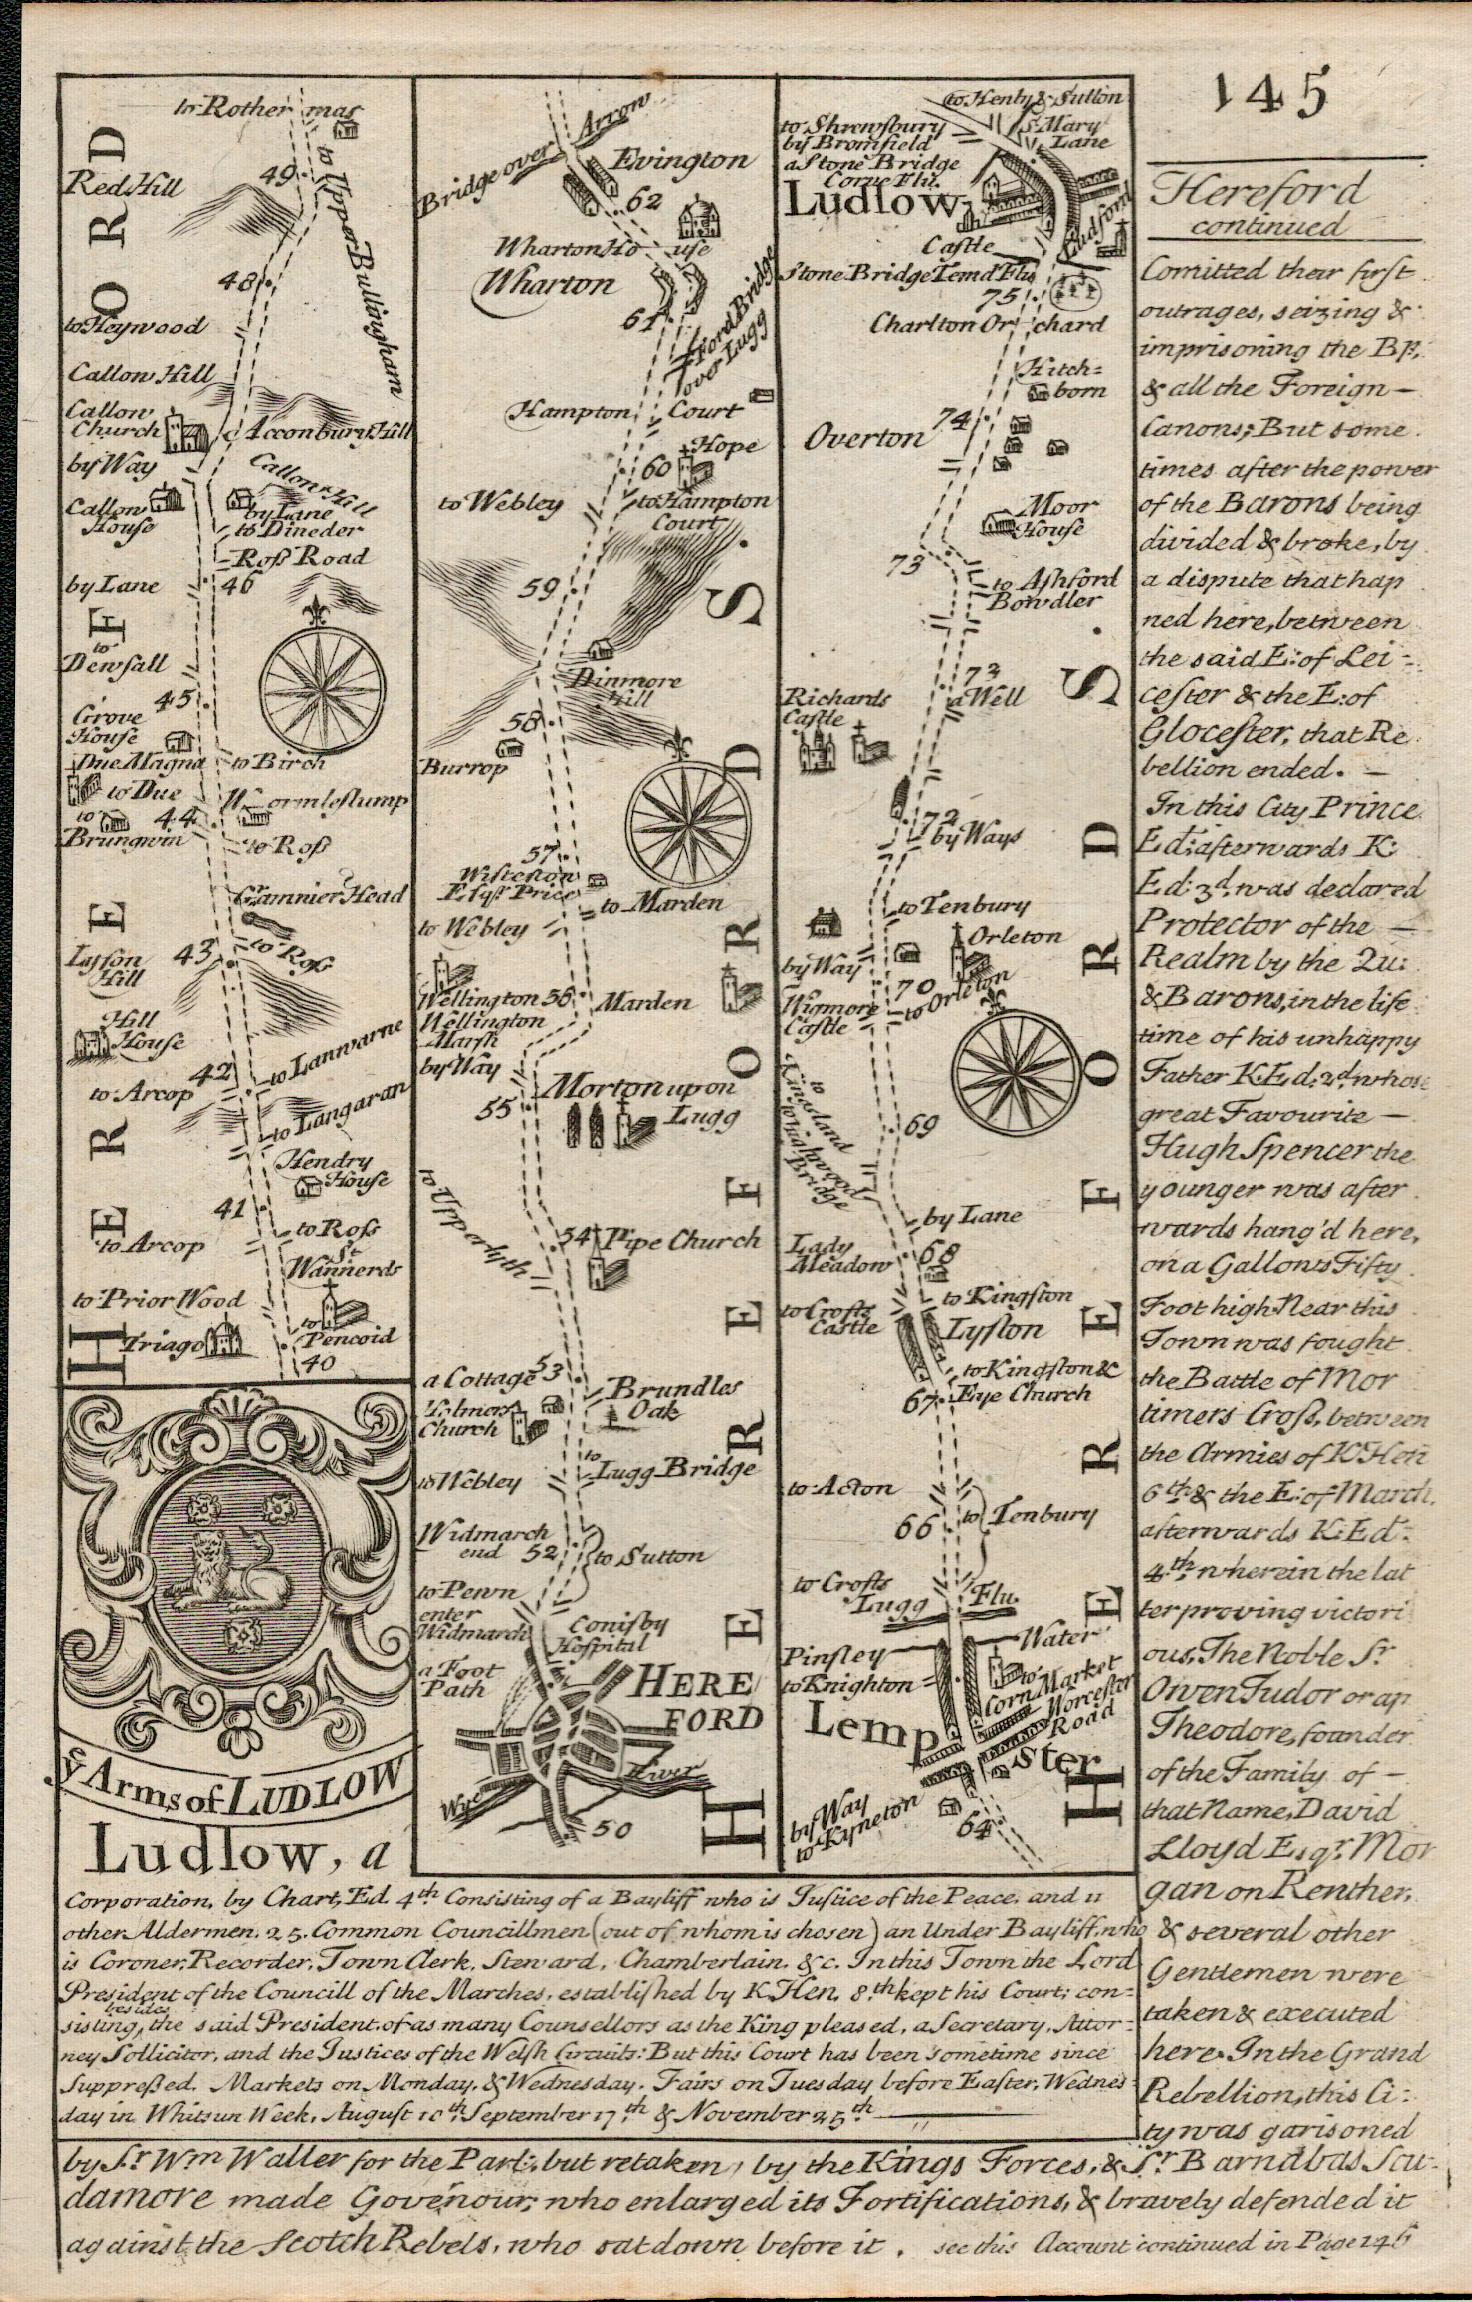 145
Hereford
continued
Comitted their first
outrages, seizing &
imprisoning the Bp.
& all the Foreign –
Canons; But some
times after the power
of the Barons being
divided & broke, by
a dispute that hap
ned here, between
the said E: of Lei=
cester & the E: of
Glocester, that Re
bellion ended. –
In this City Prince
Ed: afterwards K:
Ed: 3d. was declared
Protector of the –
Realm by the Qu:
& Barons, in the life
time of his unhappy
Father K. Ed: 2d. whose
great Favourite –
Hugh Spencer the
younger was after
wards hang'd here,
on a Gallows Fifty
Foot high. Near this
Town was fought
the Battle of Mor
timers Cross, between
the Armies of K. Hen
6th. & the E: of March,
afterwards K: Ed:
4th. wherein the lat
ter proving victori
ous, The Noble Sr.
Owen Tudor or ap
Theodore, founder
of the Family of –
that Name, David
Lloyd Esqr. Mor
gan on Renther,
& several other
Gentlemen were
taken & executed
here. In the Grand
Rebellion, this Ci:
ty was garisoned
by Sr. Wm Waller for the Parl:, but retaken, by the Kings Forces, & Sr. Barnabas Scu-
damore made Govenour; who enlarged its Fortifications, & bravely defended it
against the Scotch Rebels, who sat down before it. see this Account continued in Page 146
HEREFORD
to Rothermas
to Upper Bullingham
49
Red Hill
48
to Heywood
Callon Hill
Callow
Church
Acconbury Hill
by Way
Callow Hill
Callow
House
by Lane
to Dineder
Ross Road
by Lane
46
to
Dewsall
45
Grove
House
Due Magna
to Birch
to Due
Wormlestump
to
Brungwin
44
to Ross
Gr. Amnier Head
43
to Ross
Lyson
Hill
Hill
House
to Lanwarne
42
to Arcop
to Langaran
Hendry
House
41
to Ross
to Arcop
St.
Wannerds
to Prior Wood
to
Pencoid
Triago
40
ye Arms of LUDLOW
Ludlow, a
Corporation, by Chart, Ed. 4th. Consisting of a Bayliff who is Justice of the Peace, and 11
other Aldermen. 25. Common Councillmen (out of whom is chosen) an Under Bayliff, who
is Coroner, Recorder, Town Clerk, Steward, Chamberlain, &c. In this Town the Lord
President of the Councill of the Marches, established by K. Hen. 8.th kept his Court; con=
sisting, besides the said President, of as many Counsellors as the King pleased, a Secretary, Attor=
ney Sollicitor, and the Justices of the Welsh Circuits: But this Court has been sometime since
Suppressed. Markets on Monday, & Wednesday. Fairs on Tuesday before Easter, Wednes=
day in Whitsun Week, August 10th. September 17th. & November 25th.
HEREFORDS.
Bridge over Arrow
Evington
62
Wharton House
Wharton
61
Ford Bridge
over Lugg
Hampton Court
Hope
60
to Webley
to Hampton
Court
59
Dinmore
Hill
58
Burrop
57
Wisteston
Esqr. Price
to Marden
to Webley
Wellington 56
Marden
Wellington
Marsh
by Way
Morton upon
Lugg
55
to Upperlyth
54
Pipe Church
53
a Cottage
Brundles
Oak
Holmor
Church
to
Lugg Bridge
to Webley
Widmarch
end 52
to Sutton
to Pewn
enter
Widmarch
Conisby
Hospital
a Foot
Path
HERE
FORD
River
Wye
50
HEREFORDS.
to Henly & Sutton
to Shrewsbury
by Bromfield
St. Mary
Lane
a Stone Bridge
Corve Flu.
Ludlow
Ludford
Castle
Stone Bridge Temd Flu
75
Charlton Orchard
Hitch=
born
74
Overton
Moor
House
73
to Ashford
Bowdler
73
a Well
Richards
Castle
72
by Ways
to Tenbury
Orleton
by Way
70
to Orleton
Wigmore
Castle
to
Kingsland
to Highwood
Bridge
69
by Lane
Lady
Meadow
68
to Kingston
to Crofts
Castle
Lyston
to Kingston &c
67
Eye Church
to Acton
66
to Tenbury
to Crofts
Lugg Flu.
Pinsley Water
to Knighton
to
Corn Market
Worcester
Road
Lempster
by Way
to Kyneton
64